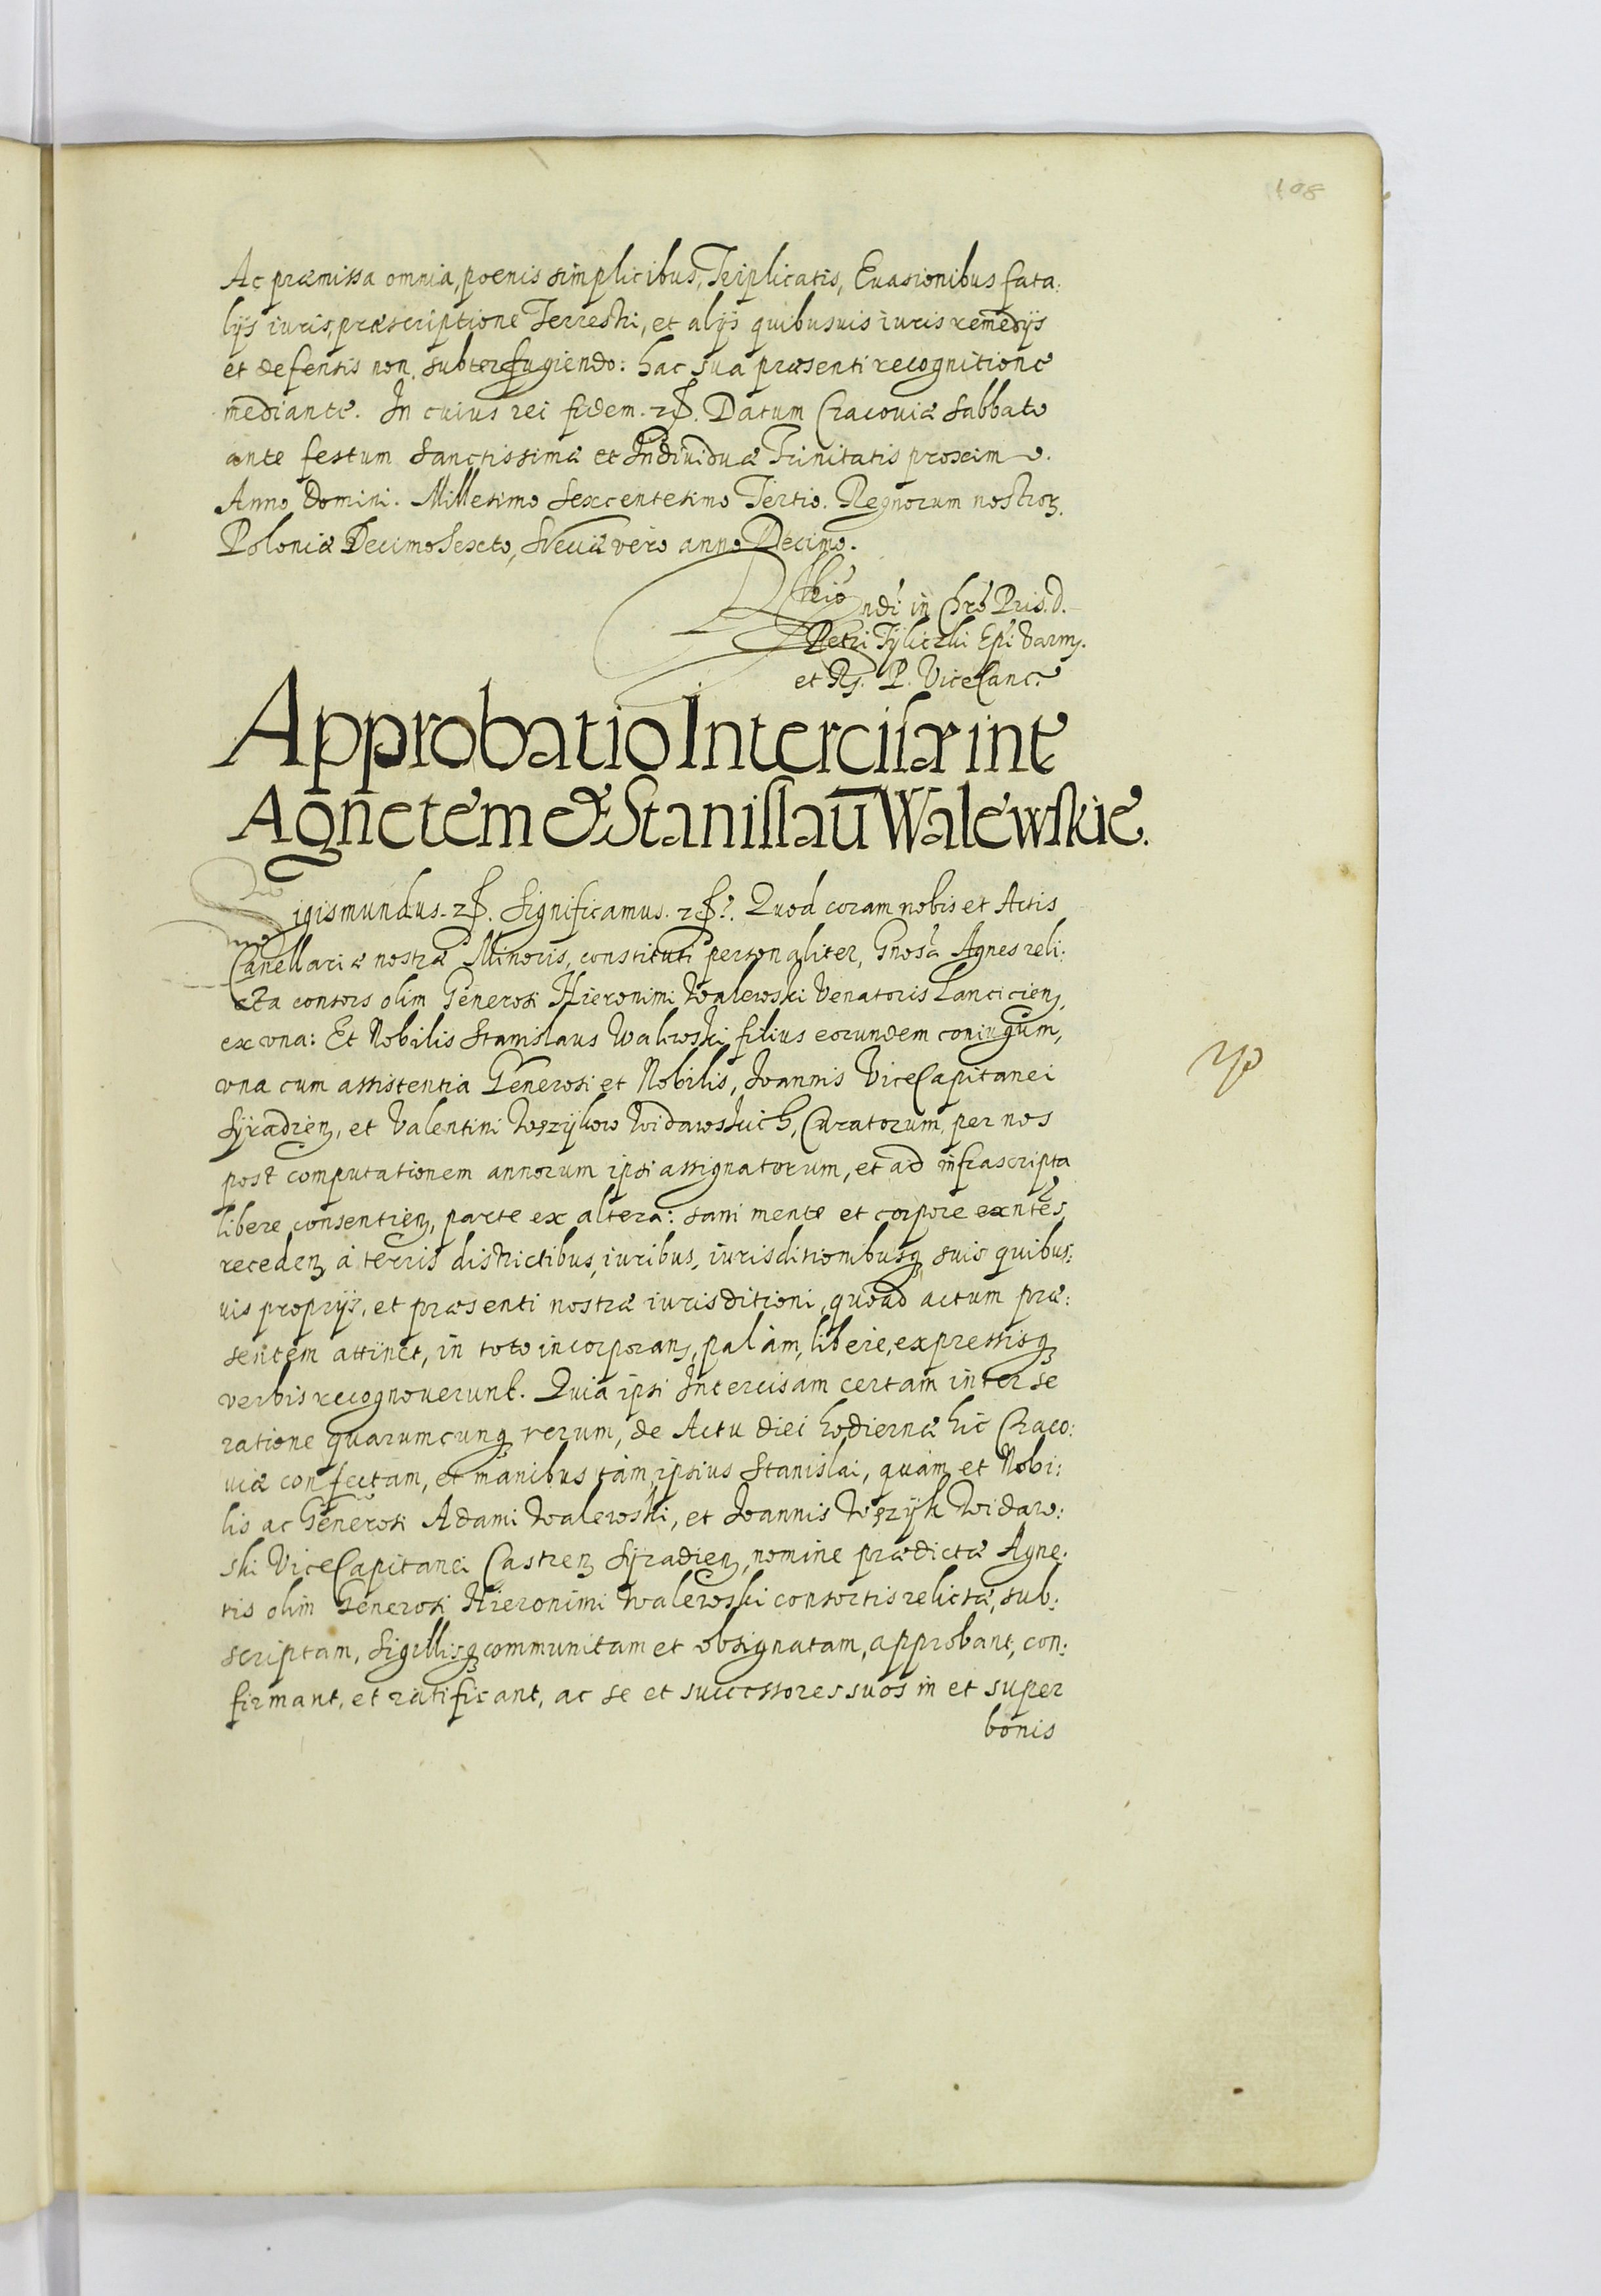 108
Ac præmissa omnia, poenis simplicibus, Triplicatis, Euasionibus fata:
lijs iuris, præscriptione Terrestri, et alijs quibusuis iuris remedijs
et defensis non subterfugiendo: hac sua præsenti recognitione
mediante. In cuius rei fidem. etc. Datum Cracouiæ Sabbato
ante festum Sanctissimæ et Indiuiduæ Trinitatis proximo.
Anno Domini. Millesimo Sexcentesimo Tertio. Regnorum nostroꝝ
Poloniæ Decimo Sexto, Sveciæ vero anno Decimo.
Rñdi in Chrõ Pris. d.
Petri Tyliczki Epi Varmꝫ.
et R. P. ViceCanc.
Approbatio Intercisæ int
Agnetem & Stanislaũ Walewskie.
Sigismundus. etc. Significamus. etc. Quod coram nobis et Actis
Canellariæ nostræ Minoris, constituti personaliter, Gnosa Agnes reli:
cta consors olim Generosi Hieronimi Walewski Venatoris Lancicienꝫ
ex vna: Et Nobilis Stanislaus Walewski filius eorundem coniugum,
vna cum assistentia Generosi et Nobilis, Ioannis ViceCapitanei
Syradienꝫ, et Valentini Wężykow Widawskich, Curatorum, per nos
post computationem annorum ipsi assignatorum, et ad infrascripta
libere consentienꝫ, parte ex altera: sani mente et corpore exñtes,
recedenꝫ à terris districtibus, iuribus, iurisditionibusqꝫ suis quibus:
uis proprijs, et præsenti nostræ iurisditioni, quoad actum præ:
sentem attinet, in toto incorporanꝫ, palàm, libere, expressisqꝫ
verbis recognouerunt. Quia ipsi Intercisam certam inter se
ratione quarumcunqꝫ rerum, de Actu diei hodiernæ hic Craco:
uiæ confectam, et manibus tàm ipsius Stanislai, quàm et Nobi:
lis ac Generosi Adami Walewski, et Ioannis Wężyk Widaw:
ski ViceCapitanei Castrenꝫ Syradienꝫ, nomine prædictæ Agne:
tis olim Generosi Hieronimi Walewski consortis relictæ, sub:
scriptam, Sigillisqꝫ communitam et obsignatam, approbant, con:
firmant, et ratificant, ac se et successores suos in et super
bonis